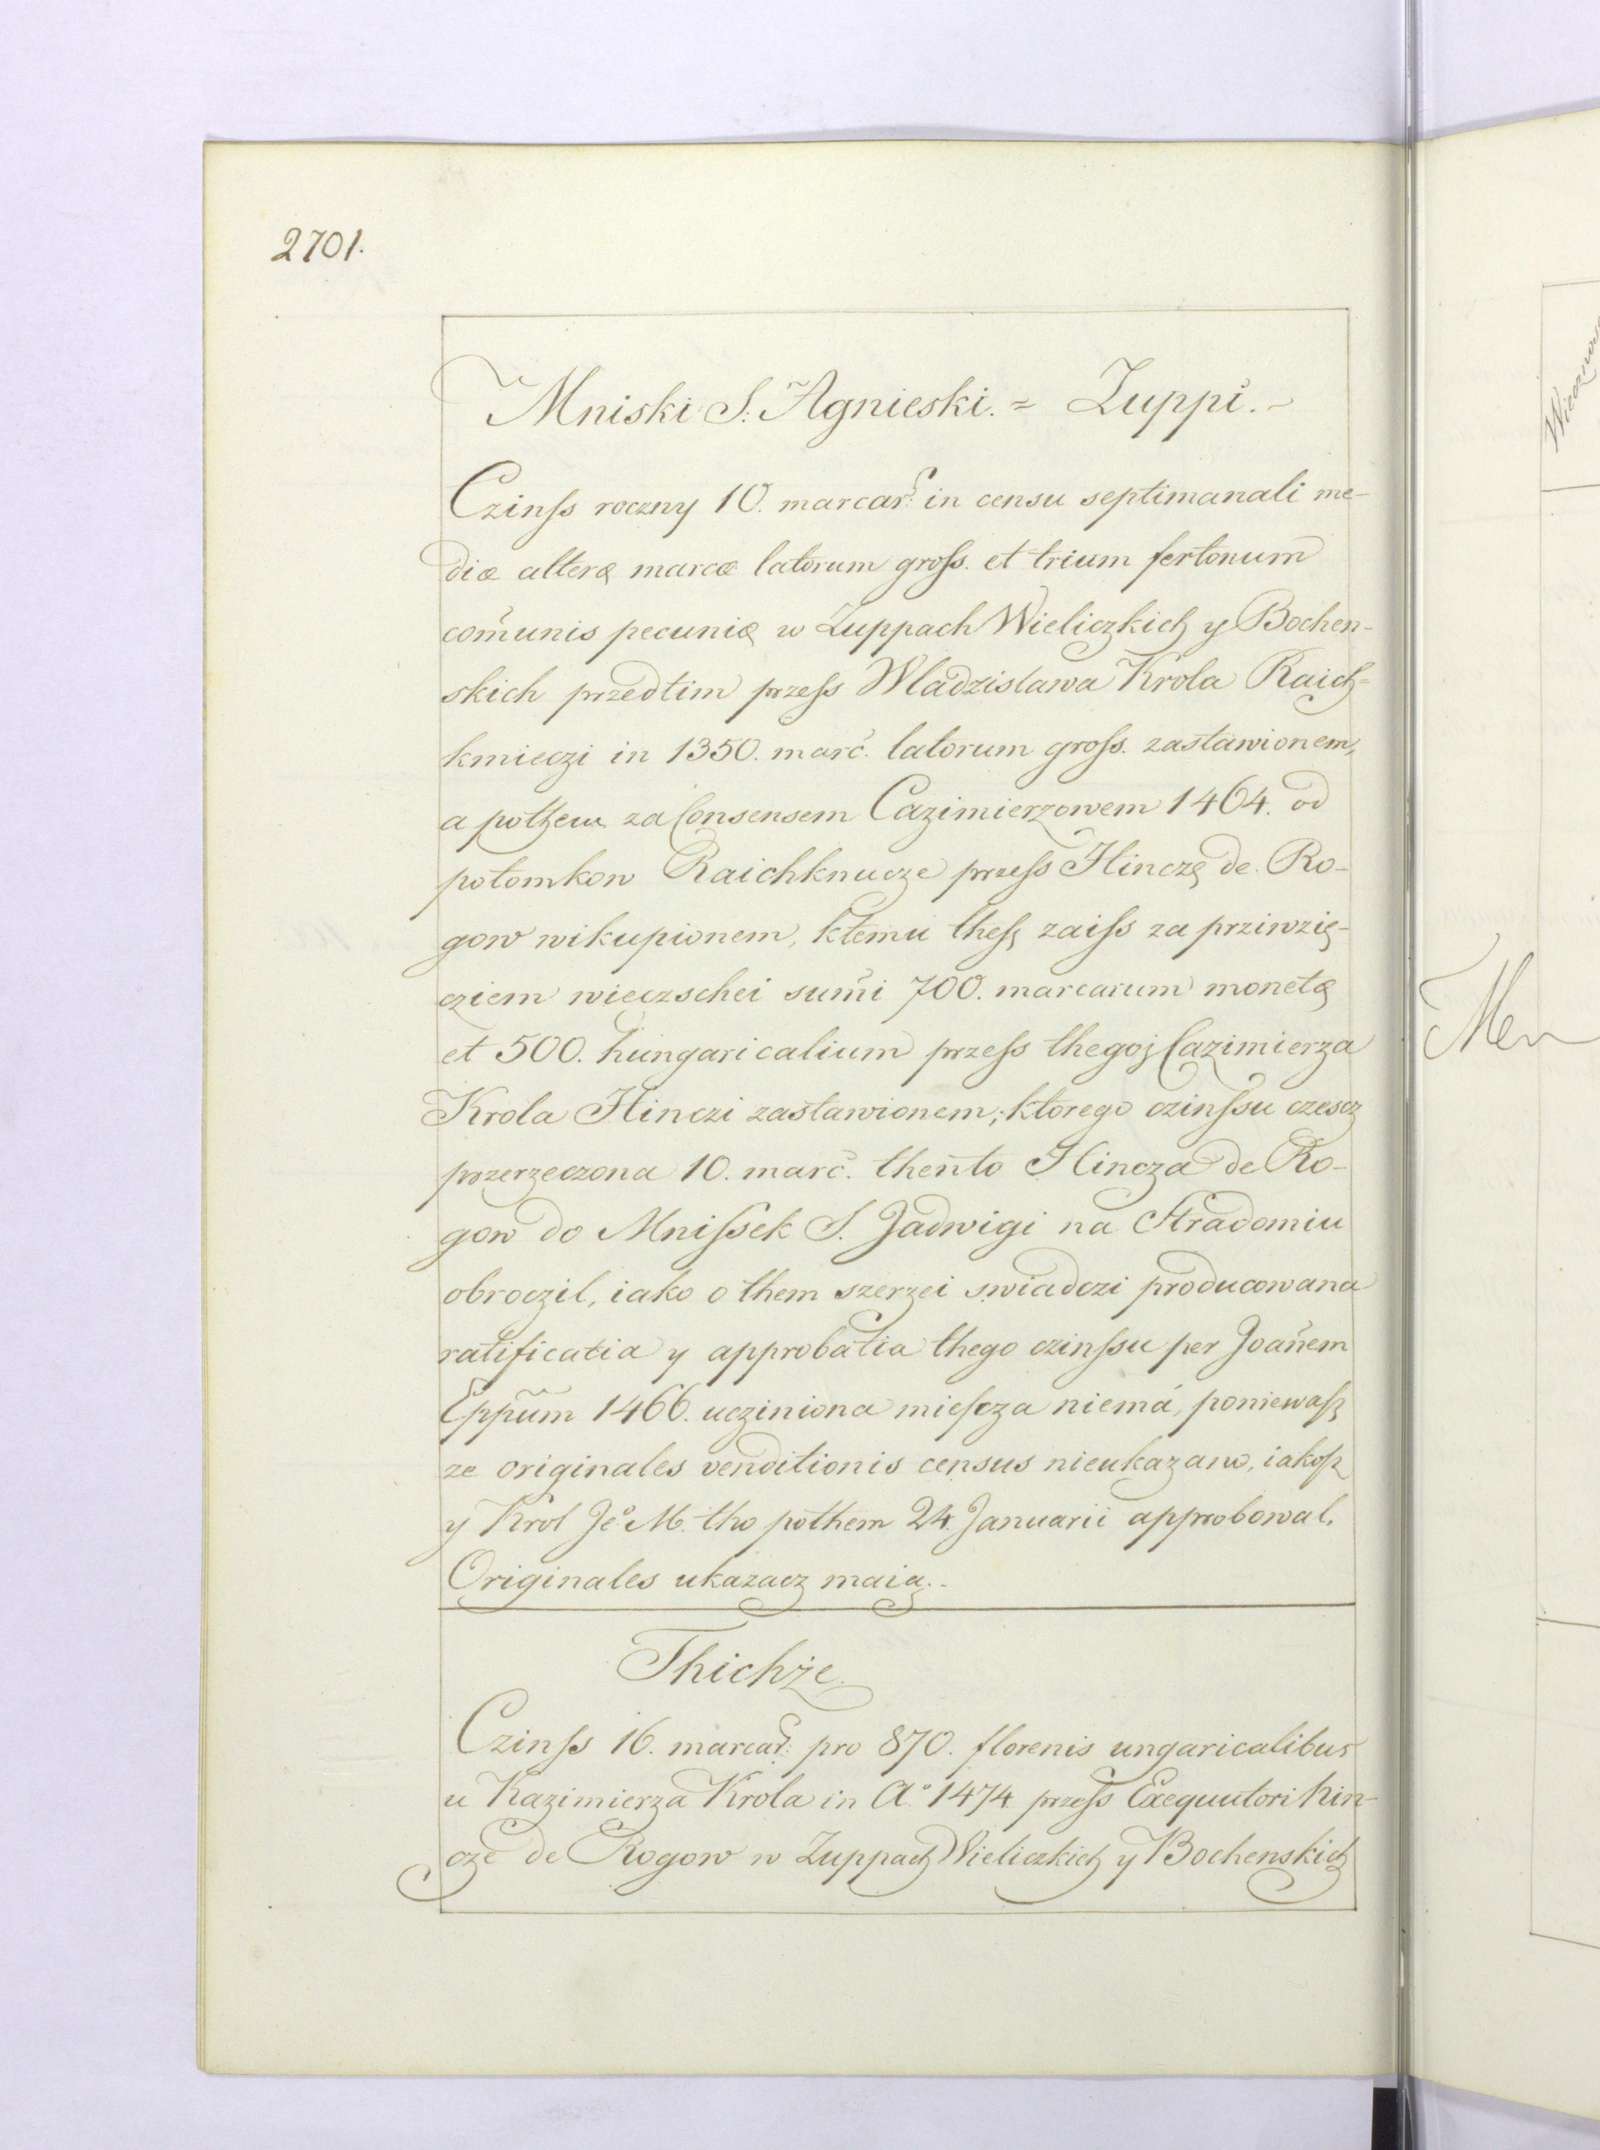 2701.
Mniski S. Agnieski. = Zuppi. ~
Czinſs roczny 10. marcar: in censu septimanali me-
diæ alteræ marcæ latorum groſs. et trium fertonum
com̃unis pecuniæ w Zuppach Wieliczkich y Bochen-
skich przedtim przeſs Wladzislawa Krola Raich-
kmieczi in 1350. marc̃. latorum groſs. zastawionem,
a pothem za Consensem Cazimierzowem 1464. od
potomkow Raichknucze przeſs Hinczę de Ro-
gow wikupionem, ktemu theſz zaiſs za prziwzię-
cziem wieczschei sum̃i 700. marcarum monetæ
et 500. hungaricalium przeſs thegoj Cazimierza
Krola Hinczi zastawionem; ktorego czinſsu czescz
przerzeczona 10. marc̃. then̄to Hincza de Ro-
gow do Mniſsek S. Jadwigi na Stradomiu
obroczil, iako o them szerzei swiadczi producowana
ratificatia y approbatia thego czinſsu per Joan̄em
Epp̃um 1466. ucziniona mieſcza niemá, poniewaſz
ze originales venditionis census nieukazano, iakoſz
y Krol Je° M. tho pothem 24. Januarii approbowal.
Originales ukazacz maią..
Thichże.
Czinſs 16. marcar: pro 870. florenis ungaricalibus
u Kazimierza Krola in A° 1474 przeſs Exequutori hin-
cze de Rogow w Zuppach Wieliczkich y Bochenskich
Men